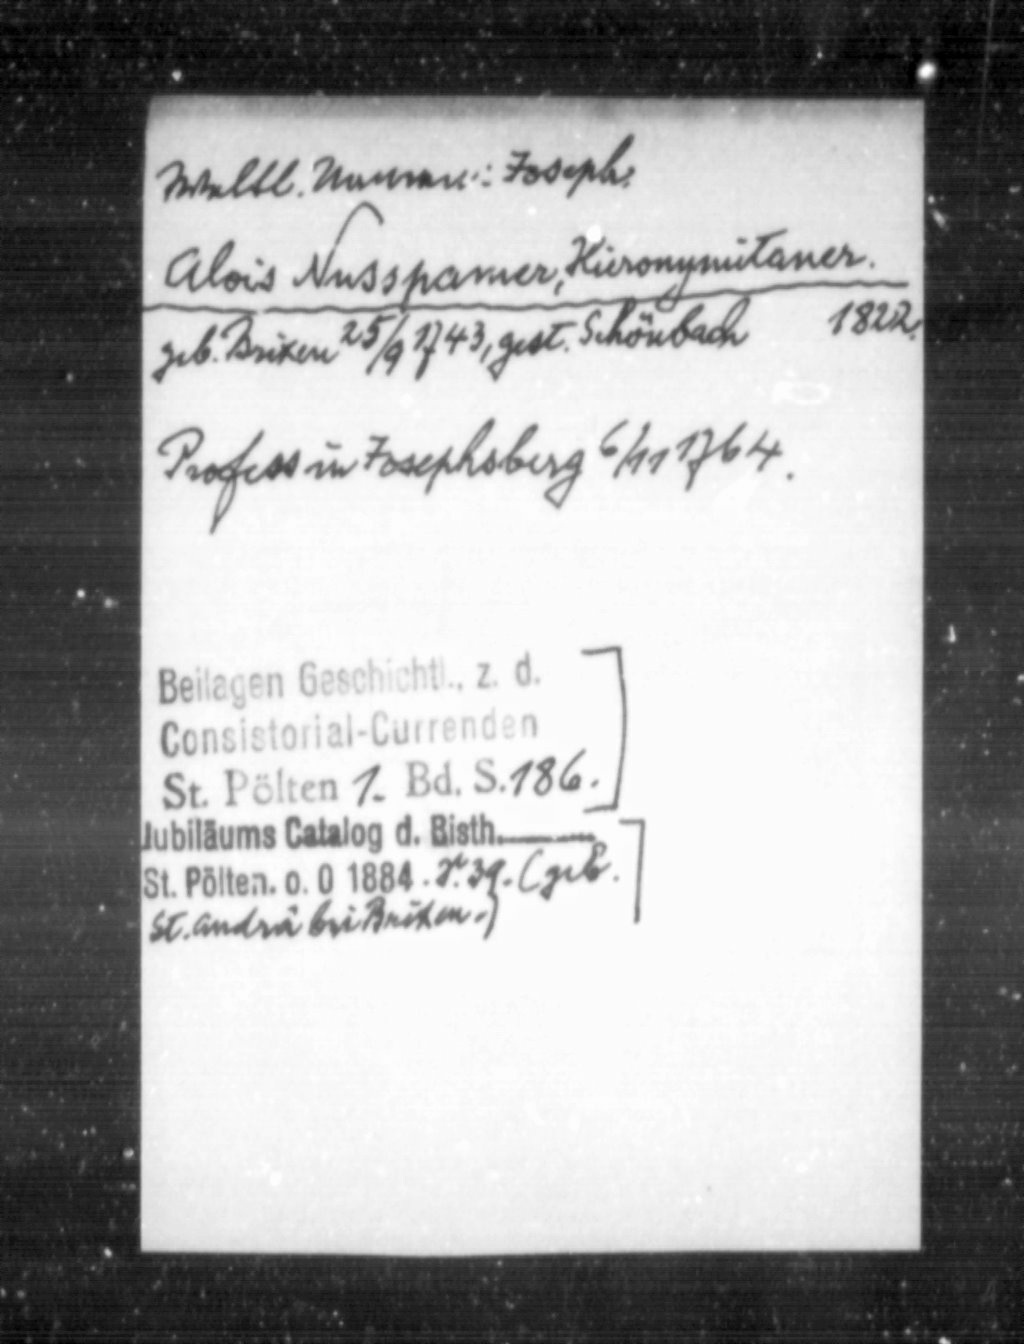 Weltl. Namen: Joseph.
Alois Nusspamer, Hieronymitaner.
geb. Brixen 25/9 1743, gest. Schönbach 1822.
Profess in Josephsberg 6/11 1764.
Beilagen Geschichtl., z. d.
Consistorial-Currenden
St. Pölten 1. Bd. S. 186.
Jubiläums Catalog d. Bisth.
St. Pölten. o. O 1884. 39. (geb.
St. Andrä bei Brixen.)